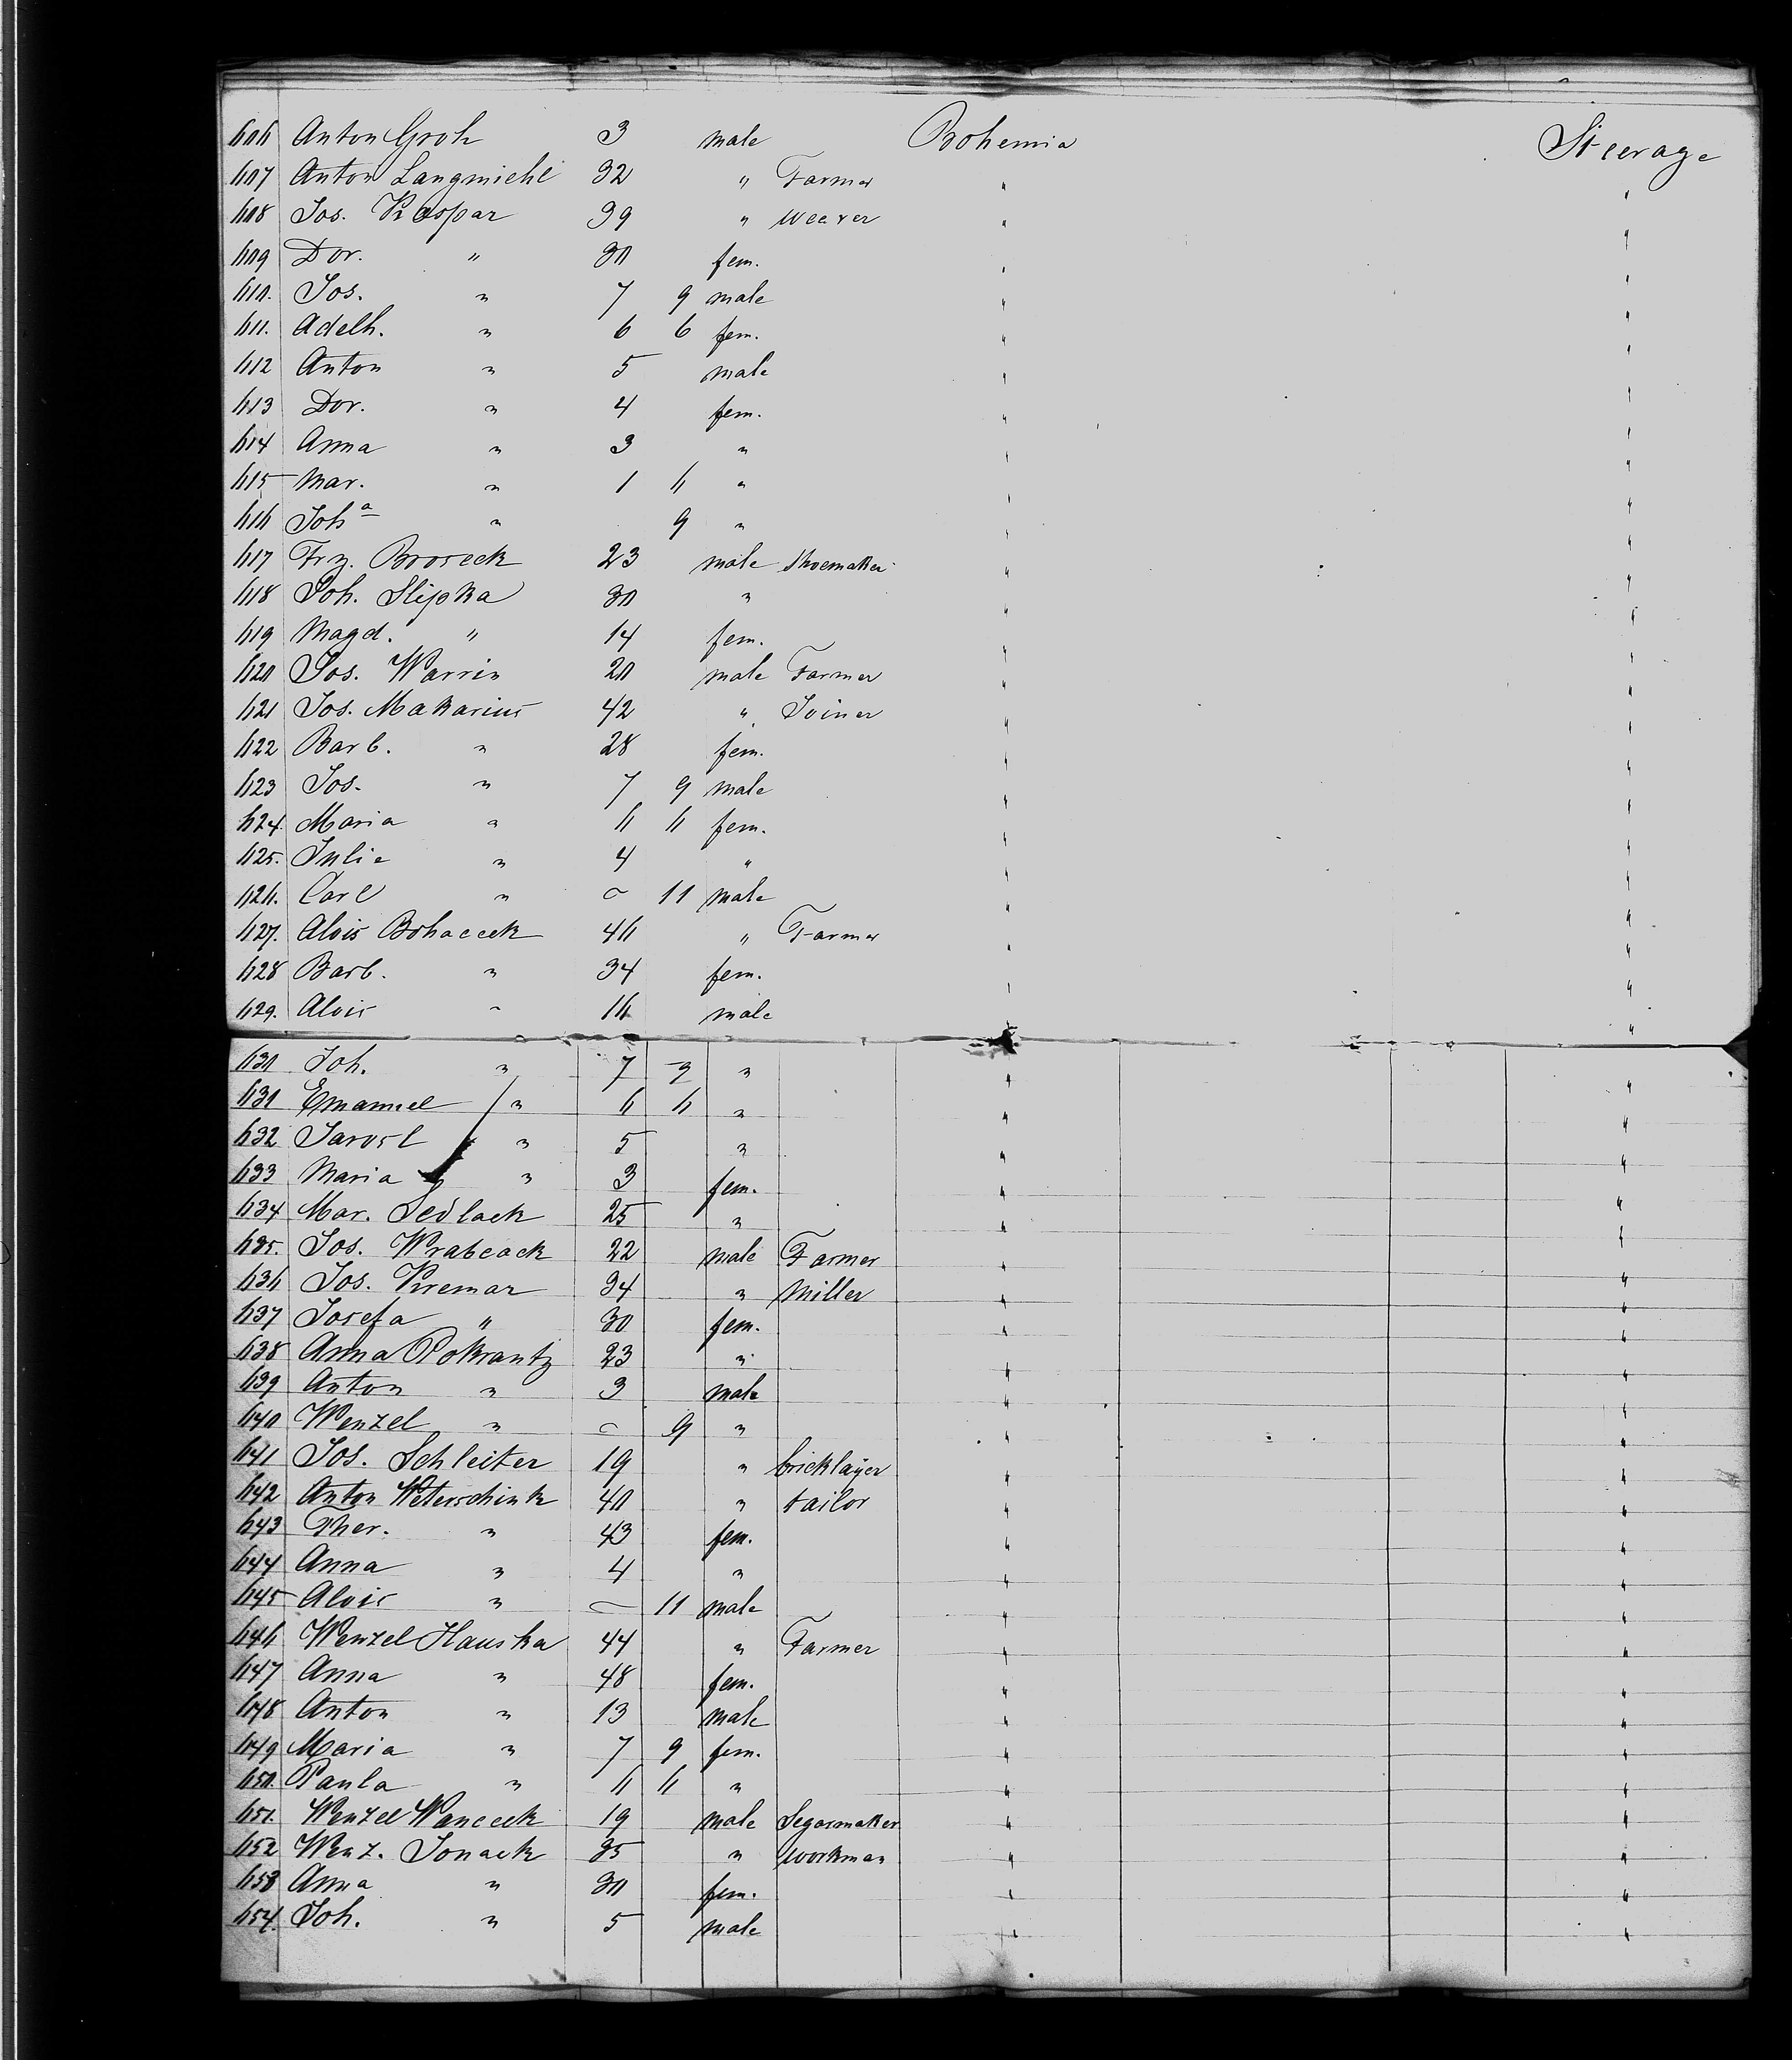 606 Anton Groh 3 male Bohemia Steerage
607 Anton Langmichl 32 " Farmer " "
608 Jos. Kaspar 39 " weaver " "
609 Dor. " 30 fem. " "
610. Jos. " 7 9 male " "
611. Adelh. " 6 6 fem. " "
612 Anton " 5 male " "
613 Dor. " 4 fem. " "
614 Anna " 3 " " "
615 Mar. " 1 6 " " "
616 Joha " 9 " " "
617 Frz. Broseck 23 male Shoemaker " "
618 Joh. Slipka 30 " " "
619 Magd. " 14 fem. " "
620 Jos. Warrin 20 male Farmer " "
621 Jos. Makarius 42 " Joiner " "
622 Barb. " 28 fem. " "
623 Jos. " 7 9 male " "
624. Maria " 6 6 fem. " "
625. Julie " 4 " " "
626. Carl " 11 male " "
627. Alois Bohaceck 46 " Farmer " "
628 Barb. " 34 fem. " "
629. Alois " 16 male " "
630 Joh. " 7 9 " " "
631 Emanuel " 6 6 " " "
632 Jarosl " 5 " " "
633 Maria " 3 fem. " "
634 Mar. Sedlack 25 " " "
635. Jos. Wrabcack 22 male Farmer " "
636 Jos. Kremar 34 " Miller " "
637 Josefa " 30 fem. " "
638 Anna Pokrantz 23 " " "
639 Anton " 3 male " "
640 Wenzel " 9 " " "
641 Jos. Schleiter 19 " bricklayer " "
642 Anton Peterschink 40 " tailor " "
643 Ther. " 43 fem. " "
644 Anna " 4 " " "
645 Alois " — 11 male " "
646 Wenzel Hauska 44 " Farmer " "
647 Anna " 48 fem. " "
648 Anton " 13 male " "
649 Maria " 7 9 fem. " "
650. Paula " 6 6 " " "
651. Wenzel Wanceck 19 male Segarmaker " "
652 Wenz. Jonack 35 " workman " "
653 Anna " 30 fem. " "
654. Joh. " 5 male " "